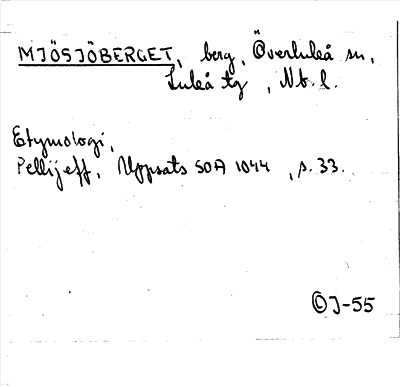 MJÖSJÖBERGET, berg, Överluleå sn,
Luleå tg, Nb. l.
Etymologi,
Pellijeff, Uppsats SOA 1044, s. 33.
© J-55